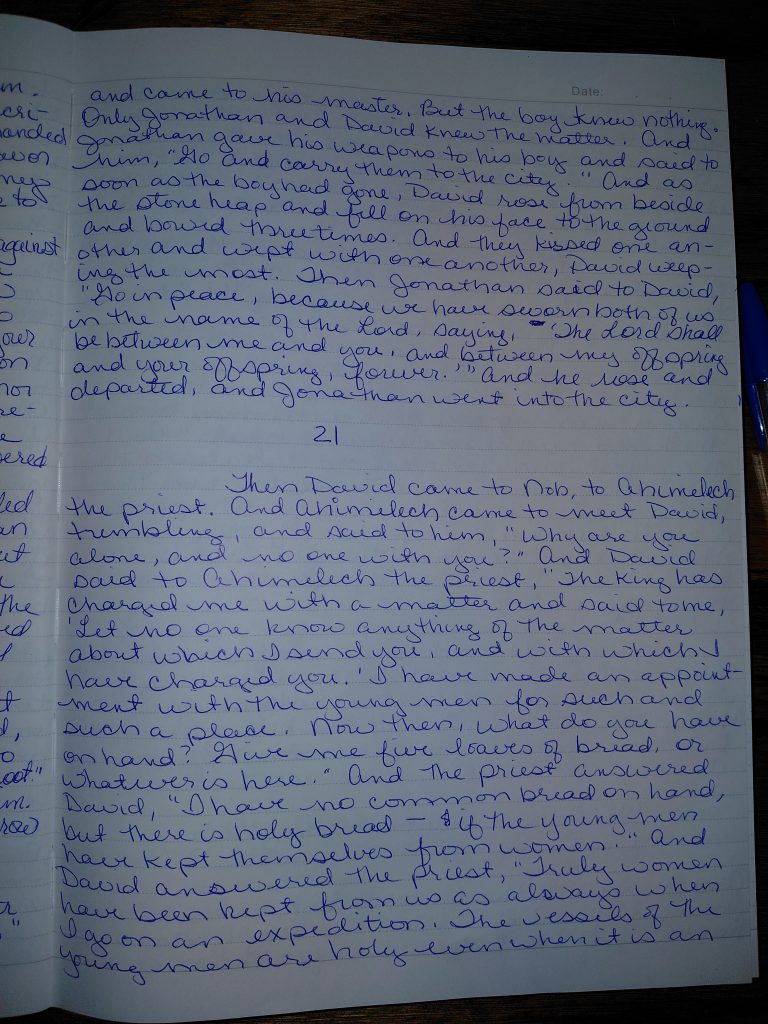 m.
cri-
anded
own
ney
e to
against
your
on
nor
re-
e
ered
led
an
ut
the
ed
t
d,
o
oot."
m.
row
r
"
Date:
and came to his master. But the boy knew nothing.
Only Jonathan and David knew the matter. And
Jonathan gave his weapons to his boy and said to
him, "Go and carry them to the city." And as
soon as the boy had gone, David rose from beside
the stone heap and fell on his face to the ground
and bowed three times. And they kissed one an-
other and wept with one another, David weep-
ing the most. Then Jonathan said to David,
"Go in peace, because we have sworn both of us
in the name of the Lord, saying, 'The Lord shall
be between me and you, and between my offspring
and your offspring, forever.'" And he rose and
departed, and Jonathan went into the city.
21
Then David came to Nob, to Ahimelech
the priest. And Ahimelech came to meet David,
trembling, and said to him, "Why are you
alone, and no one with you?" And David
said to Ahimelech the priest, "The King has
charged me with a matter and said to me,
'Let no one know anything of the matter
about which I send you, and with which I
have charged you.' I have made an appoint-
ment with the young men for such and
such a place. Now then, what do you have
on hand? Give me five loaves of bread, or
whatever is here." And the priest answered
David, "I have no common bread on hand,
but there is holy bread — if the young men
have kept themselves from women." And
David answered the priest, "Truly women
have been kept from us as always when
I go on an expedition. The vessels of the
young men are holy even when it is an